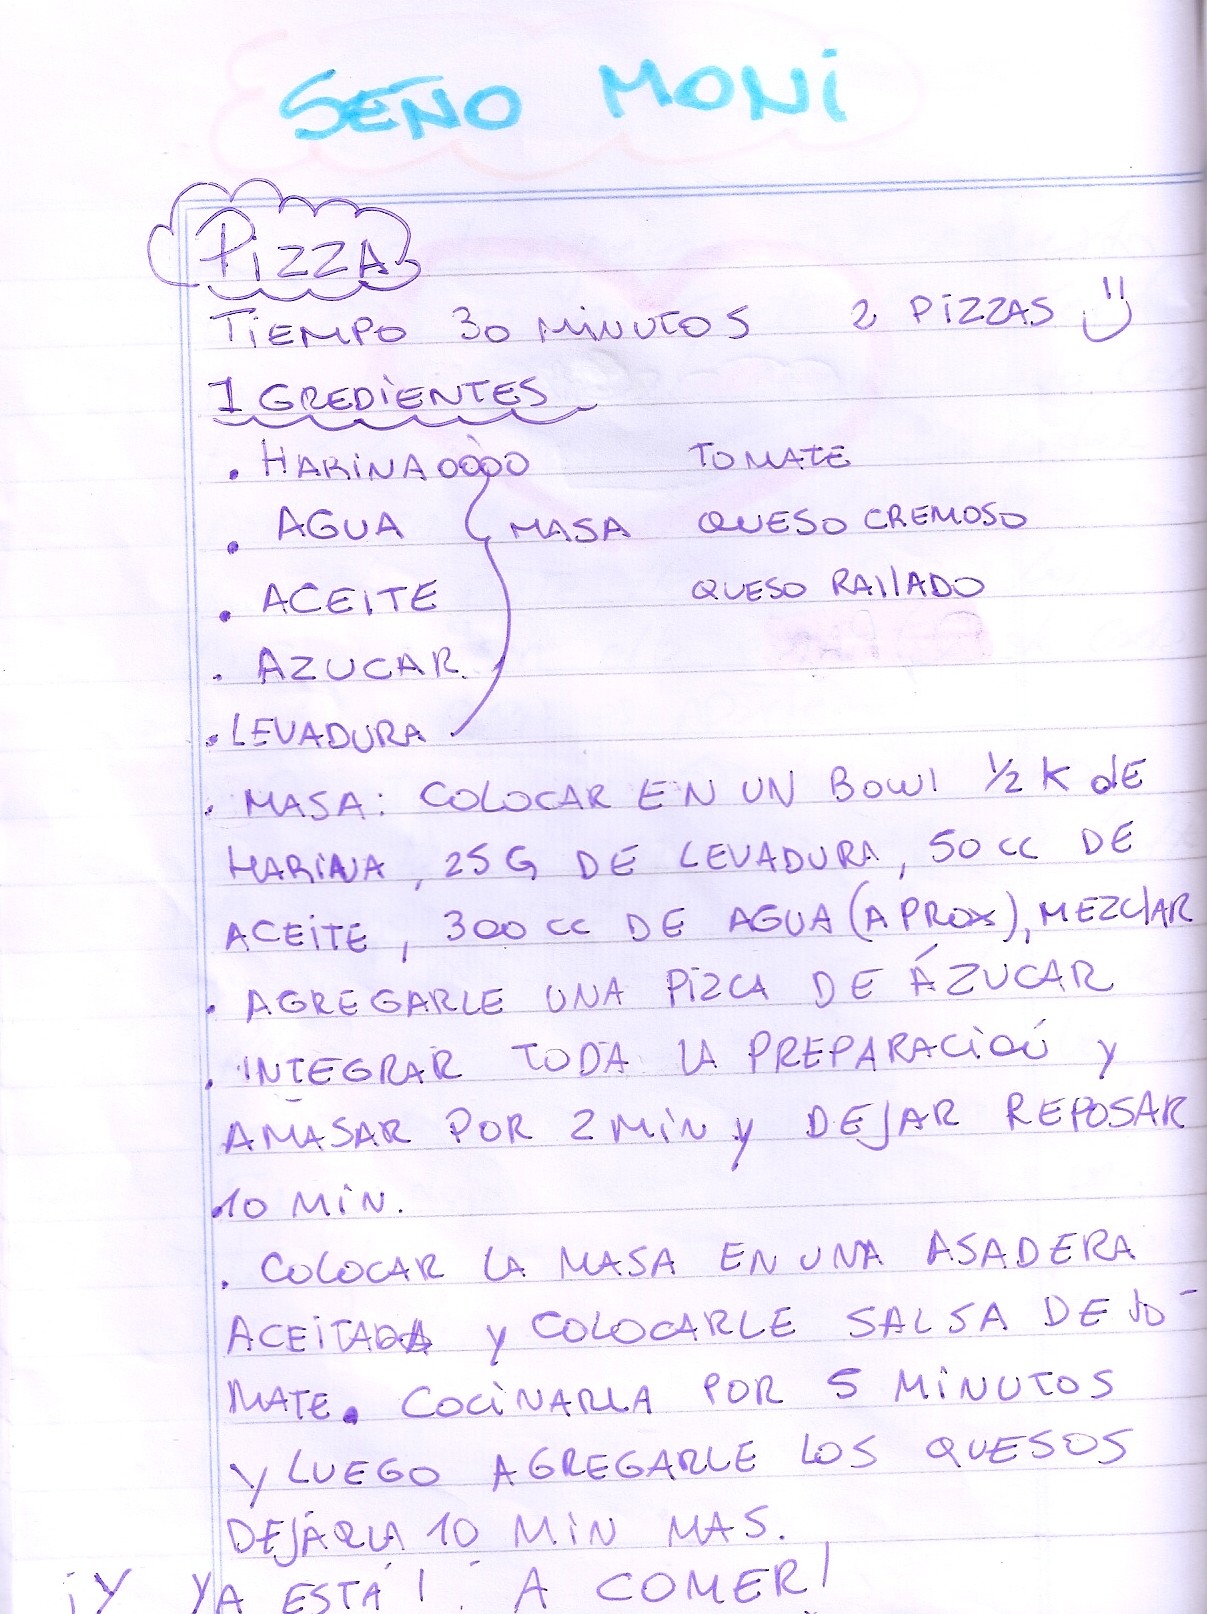 SEÑO MONI
PIZZA
TIEMPO 30 MINUTOS 2 PIZZAS
IGREDIENTES
. HARINA 0000 TOMATE
. AGUA MASA QUESO CREMOSO
. ACEITE QUESO RALLADO
. AZUCAR.
. LEVADURA
. MASA: COLOCAR EN UN BOWL ½ K dE
HARINA, 25G DE LEVADURA, 50 CC DE
ACEITE, 300 CC DE AGUA (APROX), MEZCLAR
. AGREGARLE UNA PIZCA DE ÁZUCAR
. INTEGRAR TODA LA PREPARACIÓN Y
AMASAR POR 2 MIN Y DEJAR REPOSAR
10 MIN.
. COLOCAR LA MASA EN UNA ASADERA
ACEITADA Y COLOCARLE SALSA DE to-
MATE. COCINARLA POR 5 MINUTOS
Y LUEGO AGREGARLE LOS QUESOS
DEJÁRLA 10 MIN MAS.
¡Y YA ESTÁ! A COMER!